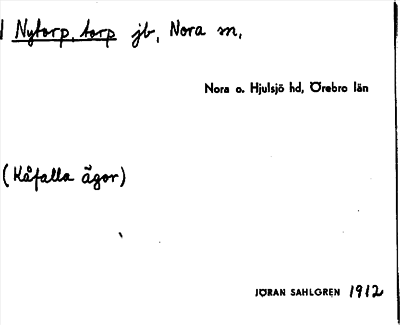 Nytorp, torp jb, Nora sn,
Nora o. Hjulsjö hd, Örebro län
(Kåfalla ägor)
JÖRAN SAHLGREN 1912